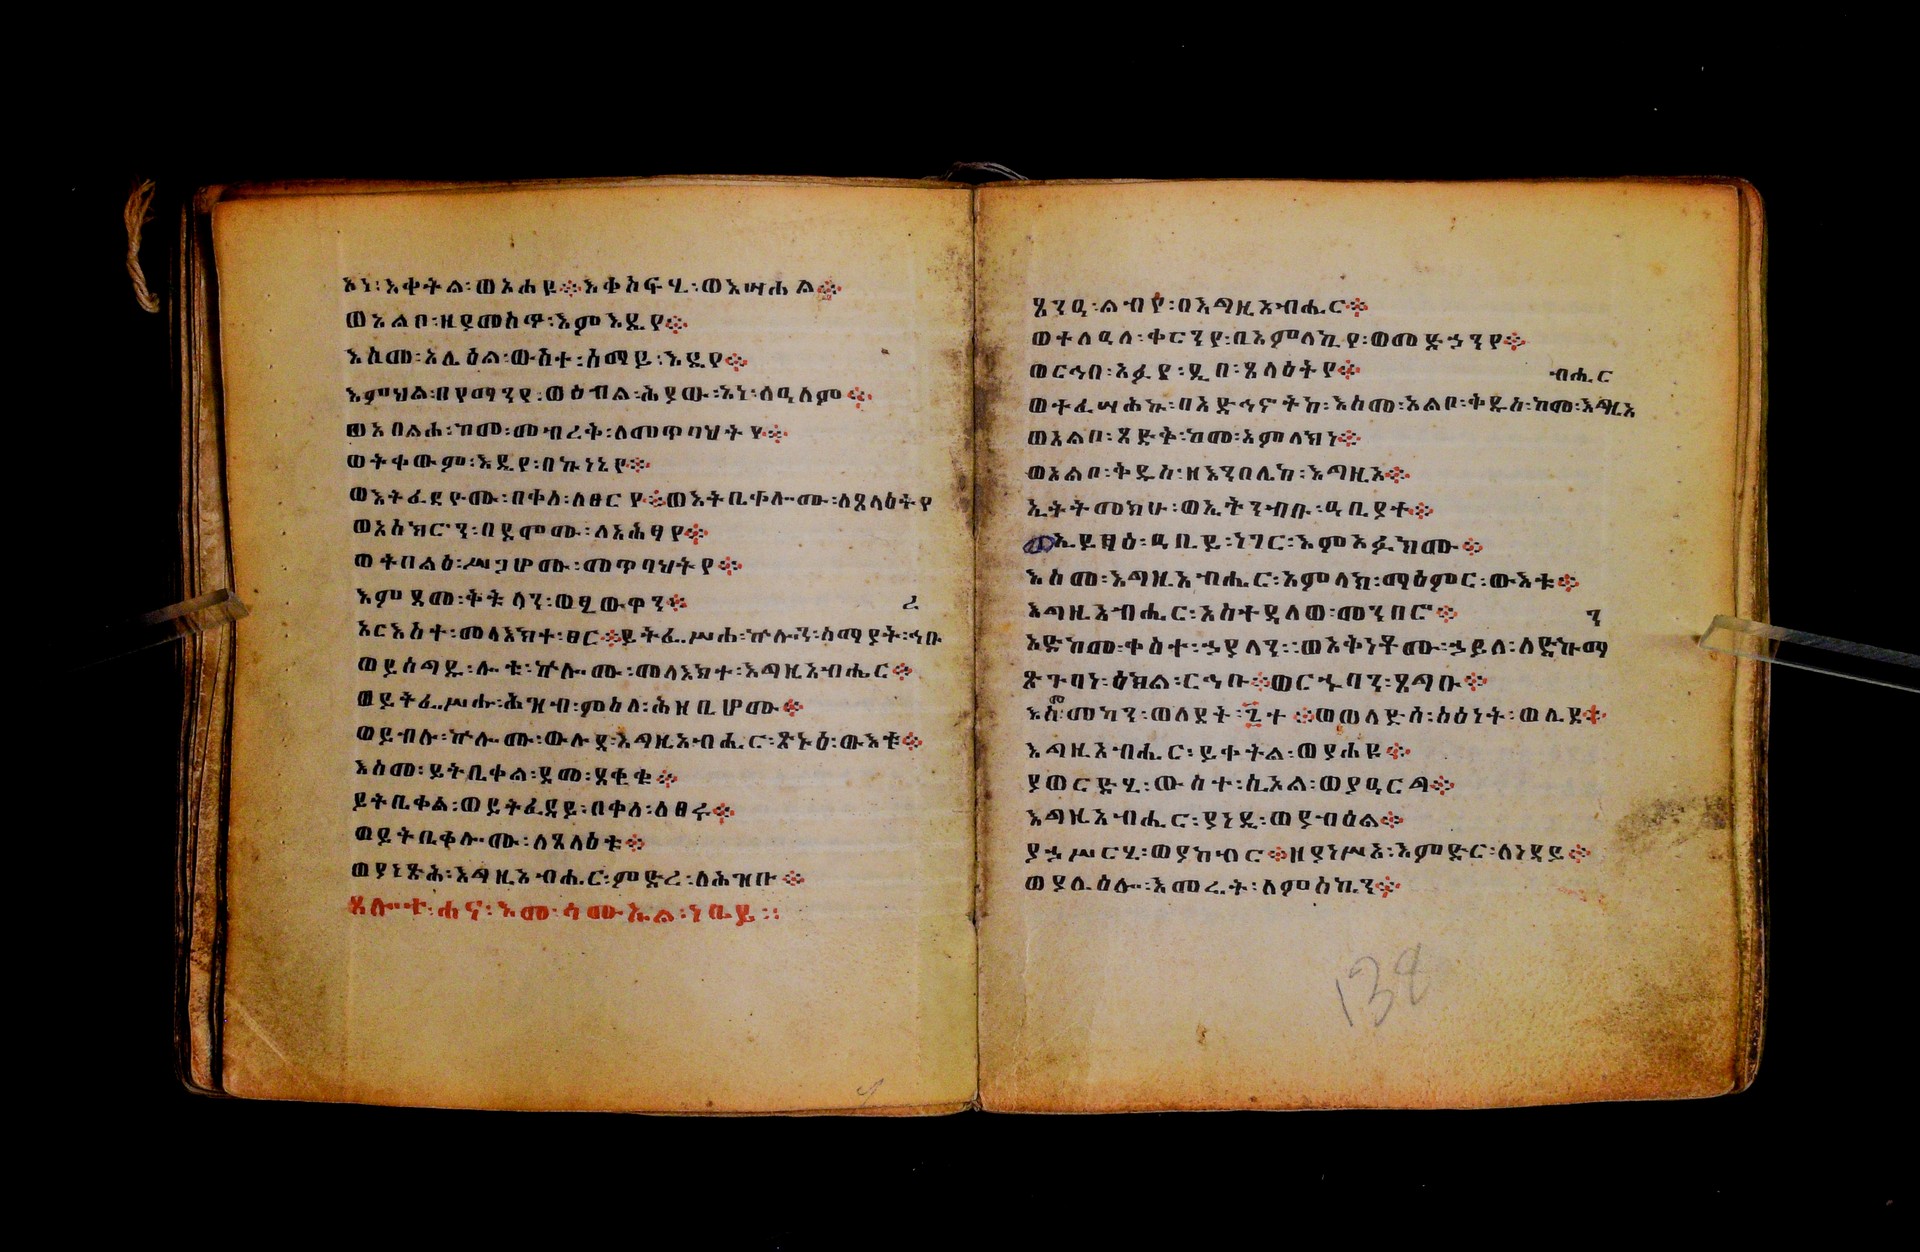 አነ፡እቀትል፡ወአሐዩ፨እቀስፍሂ፡ወእሣሐል፨
ወአልቦ፡ዘያመስጥ፡እምእዴየ፨
እስመ፡አሌዕል፡ውስተ፡ሰማይ፡እዴየ፨
እምህል፡በየማንየ፡ወዕብል፡ሕያው፡አነ፡ለዓለም፨
ወአበልሐ፡ከመ፡መብረቅ፡ለመጥባህትየ፨
ወትቀውም፡እዴየ፡በኵነኔየ፨
ወእትፈደዮሙ፡በቀለ፡ለፀርየ፨ወእትቤቀሎሙ፡ለጸላዕትየ
ወአሰክሮን፡በደሞሙ፡ለአሕፃየ፨
ወትበልዕ፡ሥጋሆሙ፡መጥባህትየ፨
እምደመ፡ቅቱላን፡ወፂውዋን፨ ረ
አርእስተ፡መላእክተ፡ፀር፨ይትፈሥሐ፡ኵሉን፡ሰማያት፡ኅቡ
ወይሰግዱ፡ሎቱ፡ኵሎሙ፡መላእክተ፡እግዚአብሔር፨
ወይትፈሥሑ፡ሕዝብ፡ምስለ፡ሕዘቢሆሙ፨
ወይብሉ፡ኵሎሙ፡ውሉደ፡እግዚአብሔር፡ጽኑዕ፡ውእቱ፨
እስመ፡ይትቤቀል፡ደመ፡ደቂቁ፨
ይትቤቀል፡ወይትፈደይ፡በቀለ፡ለፀሩ፨
ወይትቤቀሎሙ፡ለጸላዕቱ፨
ወያነጽሕ፡እግዚአብሔር፡ምድረ፡ለሕዝቡ፨
ጸሎተ፡ሐና፡እመ፡ሳሙኤል፡ነቢይ፡፡
ጸንዓ፡ልብየ፡በእግዚአብሔር፨
ወተለዓለ፡ቀርንየ፡በአምላኪየ፡ወመድኃንየ፨
ወርኅበ፡አፉየ፡ዲበ፡ጸላዕትየ፨
ብሔር
ወተፈሣሕኩ፡በአድኅኖትከ፡እስመ፡አልቦ፡ቅዱስ፡ከመ፡እግዚአ
ወአልቦ፡ጻድቅ፡ከመ፡አምላክነ፨
ወአልቦ፡ቅዱስ፡ዘእንበሌከ፡እግዚአ፨
ኢትትመክሁ፡ወኢትንብቡ፡ዓቢያተ፨
ወኢይፃዕ፡ዓቢይ፡ነገር፡እምአፉክሙ፨
እስመ፡እግዚአብሔር፡አምላክ፡ማዕምር፡ውእቱ፨
እግዚአብሔር፡አስተዳለወ፡መንበሮ፨ ን
አድከመ፡ቀስተ፡ኃያላን፡፡ወአቅነቶሙ፡ኃይለ፡ለድኩማ
ጽጉባነ፡ዕክል፡ርኅቡ፨ወርኁባን፡ጸግቡ፨
እስመ፡መካን፡ወለደት፡፯ተ፨ወወላድሰ፡ስዕነት፡ወሊደ፨
እግዚአብሔር፡ይቀትል፡ወያሐዩ፨
ያወርድሂ፡ውስተ፡ሲኦል፡ወያዓርግ፨
እግዚአብሔር፡ያነዲ፡ወያብዕል፨
ያኃሥርሂ፡ወያከብር፨ዘያነሥእ፡እምድር፡ለነዳይ፨
ወያሌዕሎ፡እመሬት፡ለምስኪን፨
138